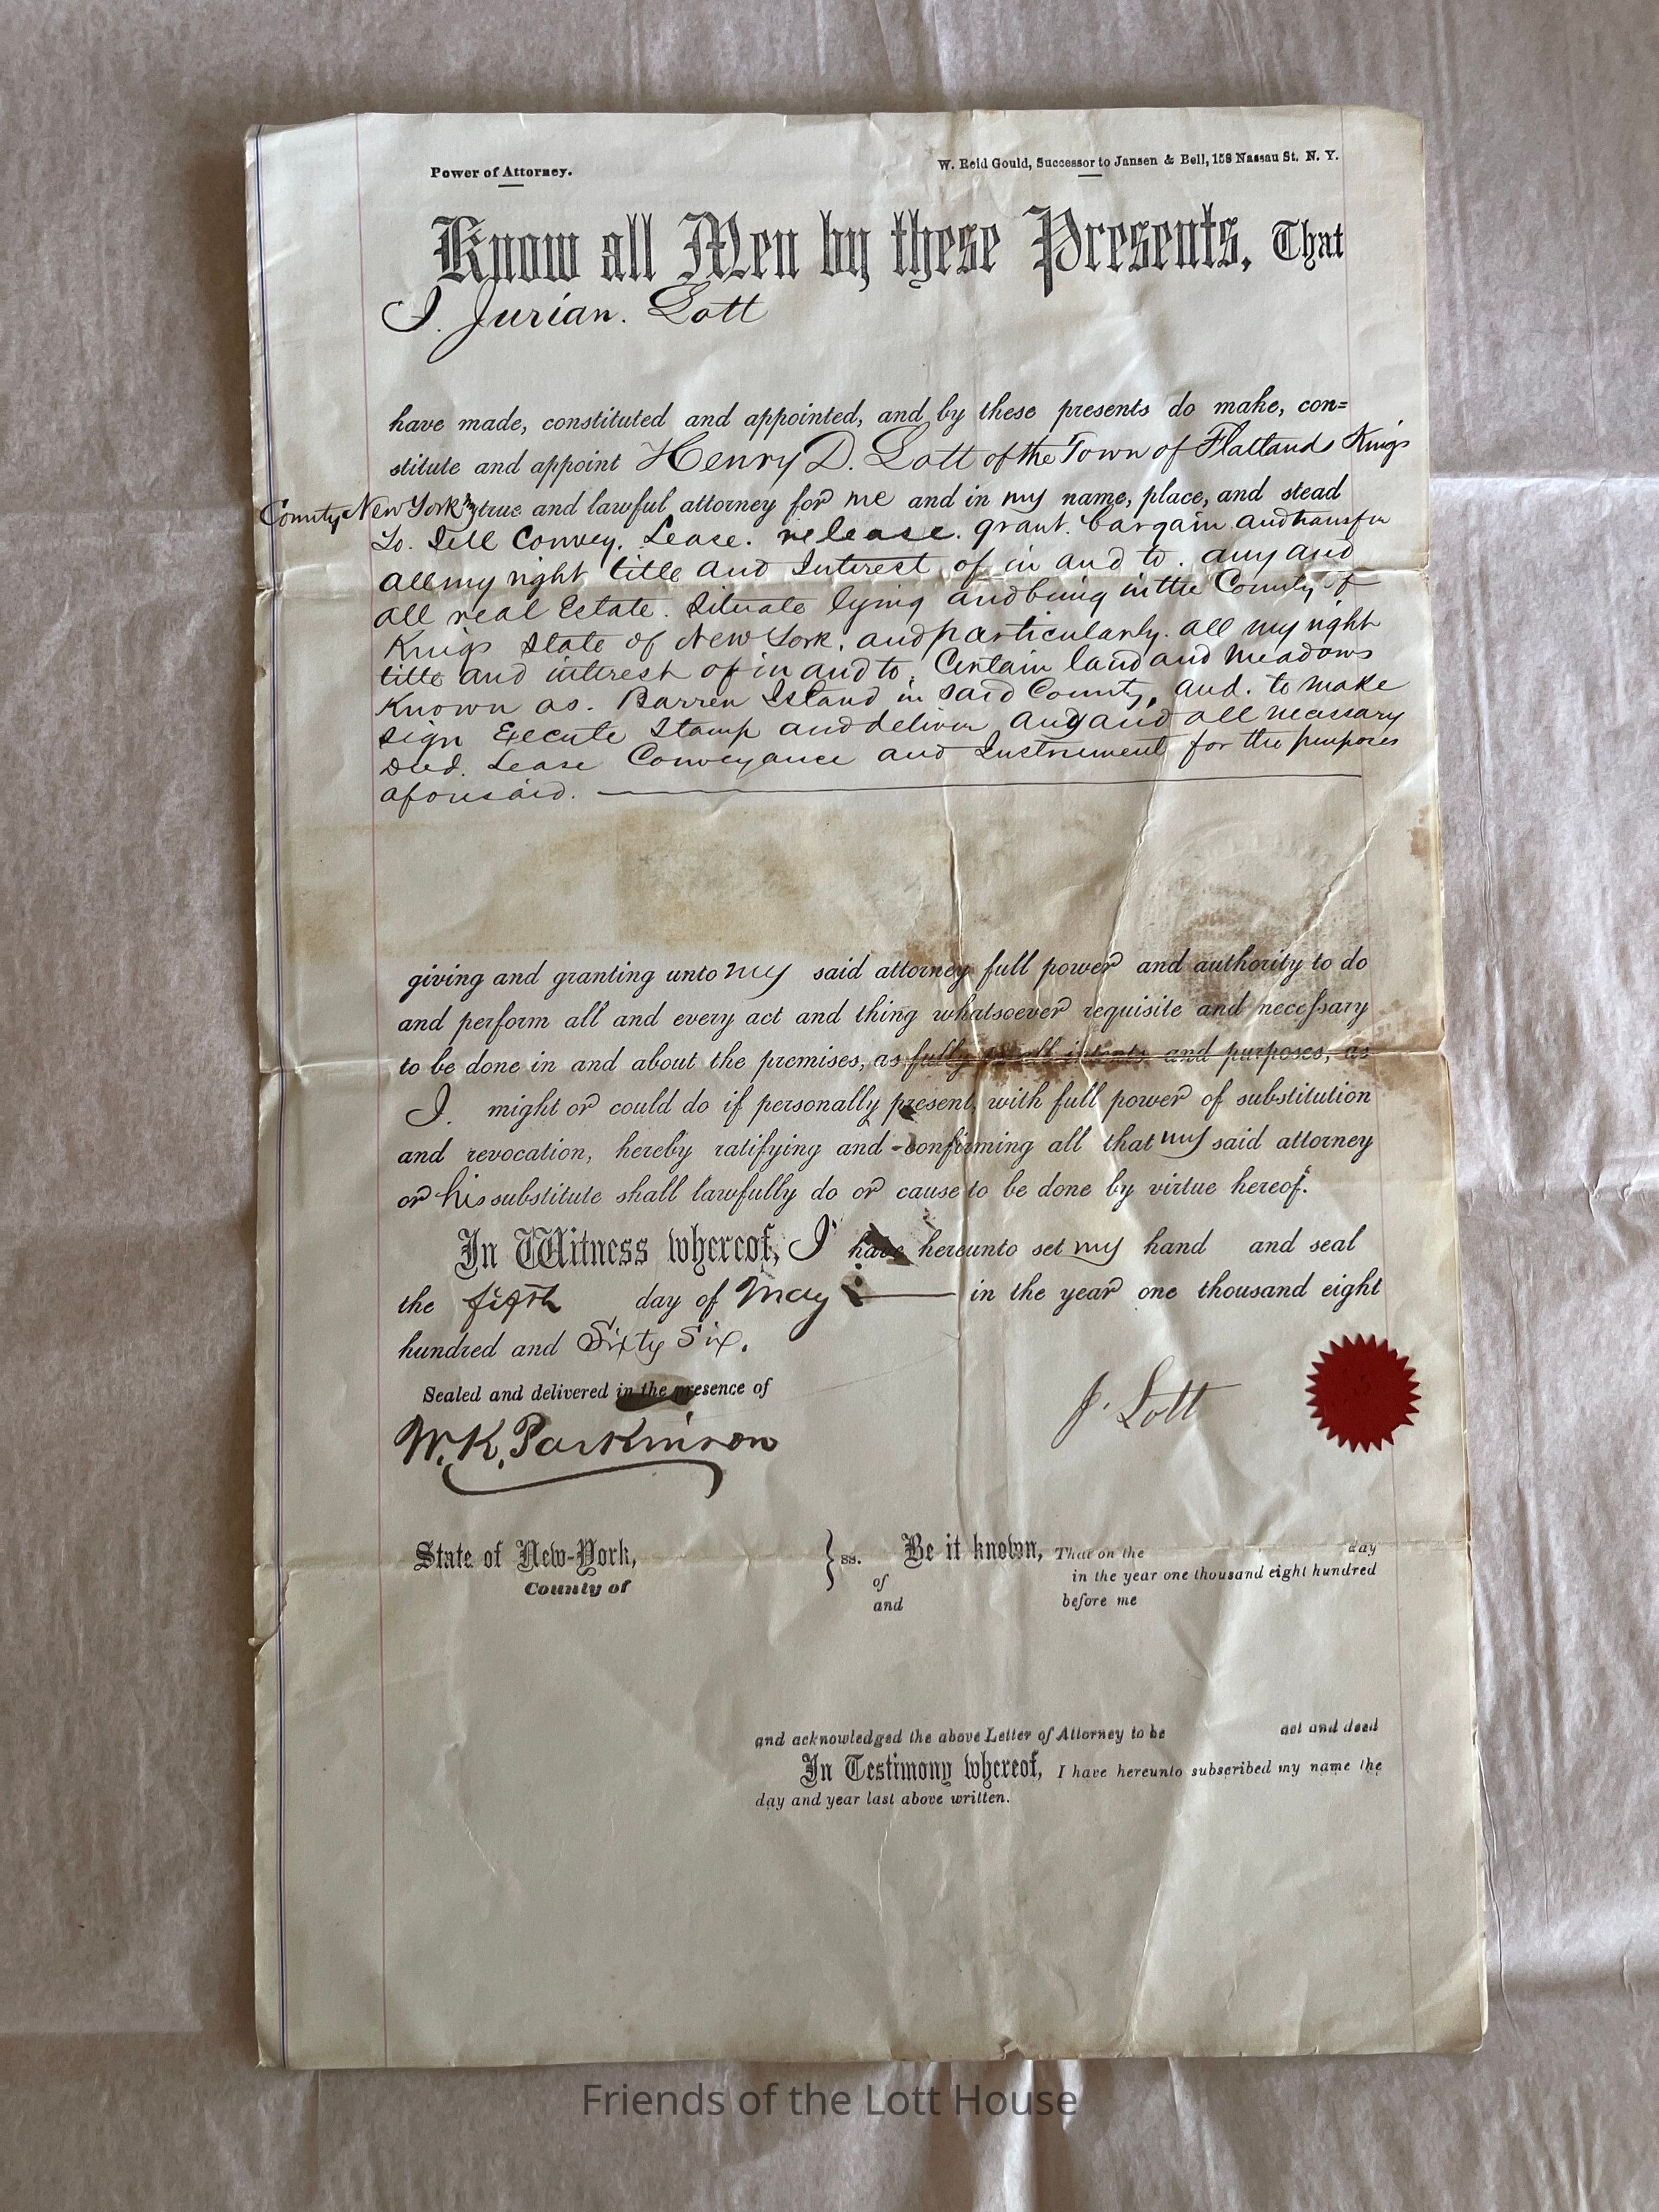 Power of Attorney.
W. Reid Gould, Successor to Jansen & Bell, 158 Nassau St. N. Y.
Know all Men by these Presents, That
I. Jurian. Lott
have made, constituted and appointed, and by these presents do make, con=
stitute and appoint Henry D. Lott of the Town of Flatlands Kings
County New York my true and lawful attorney for me and in my name, place, and stead
To. Sell Convey. Lease. release. grant. bargain and transfer
all my right title and Interest of in and to. any and
all real Estate. Situate lying and being in the County of
Kings State of New York. and particularly. all my right
title and interest of in and to. Certain land and meadows
Known as. Barren Island in said County, and. to make
sign Execute Stamp and deliver any and all necessary
Deed. Lease Conveyance and Instrument for the purposes
aforesaid.
giving and granting unto my said attorney full power and authority to do
and perform all and every act and thing whatsoever requisite and necessary
to be done in and about the premises, as fully to all intents and purposes, as
I. might or could do if personally present, with full power of substitution
and revocation, hereby ratifying and confirming all that my said attorney
or his substitute shall lawfully do or cause to be done by virtue hereof.
In Witness whereof, I have hereunto set my hand and seal
the fifth day of May in the year one thousand eight
hundred and Sixty Six.
Sealed and delivered in the presence of
W. K. Parkinson
J. Lott
State of New-York,
County of
ss.
Be it known, That on the day
of in the year one thousand eight hundred
and before me
and acknowledged the above Letter of Attorney to be act and deed
In Testimony whereof, I have hereunto subscribed my name the
day and year last above written.
Friends of the Lott House